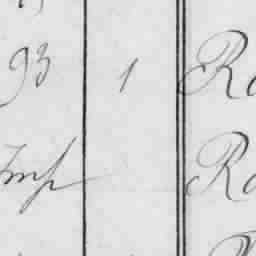 93 1 Ro
Imp Ro